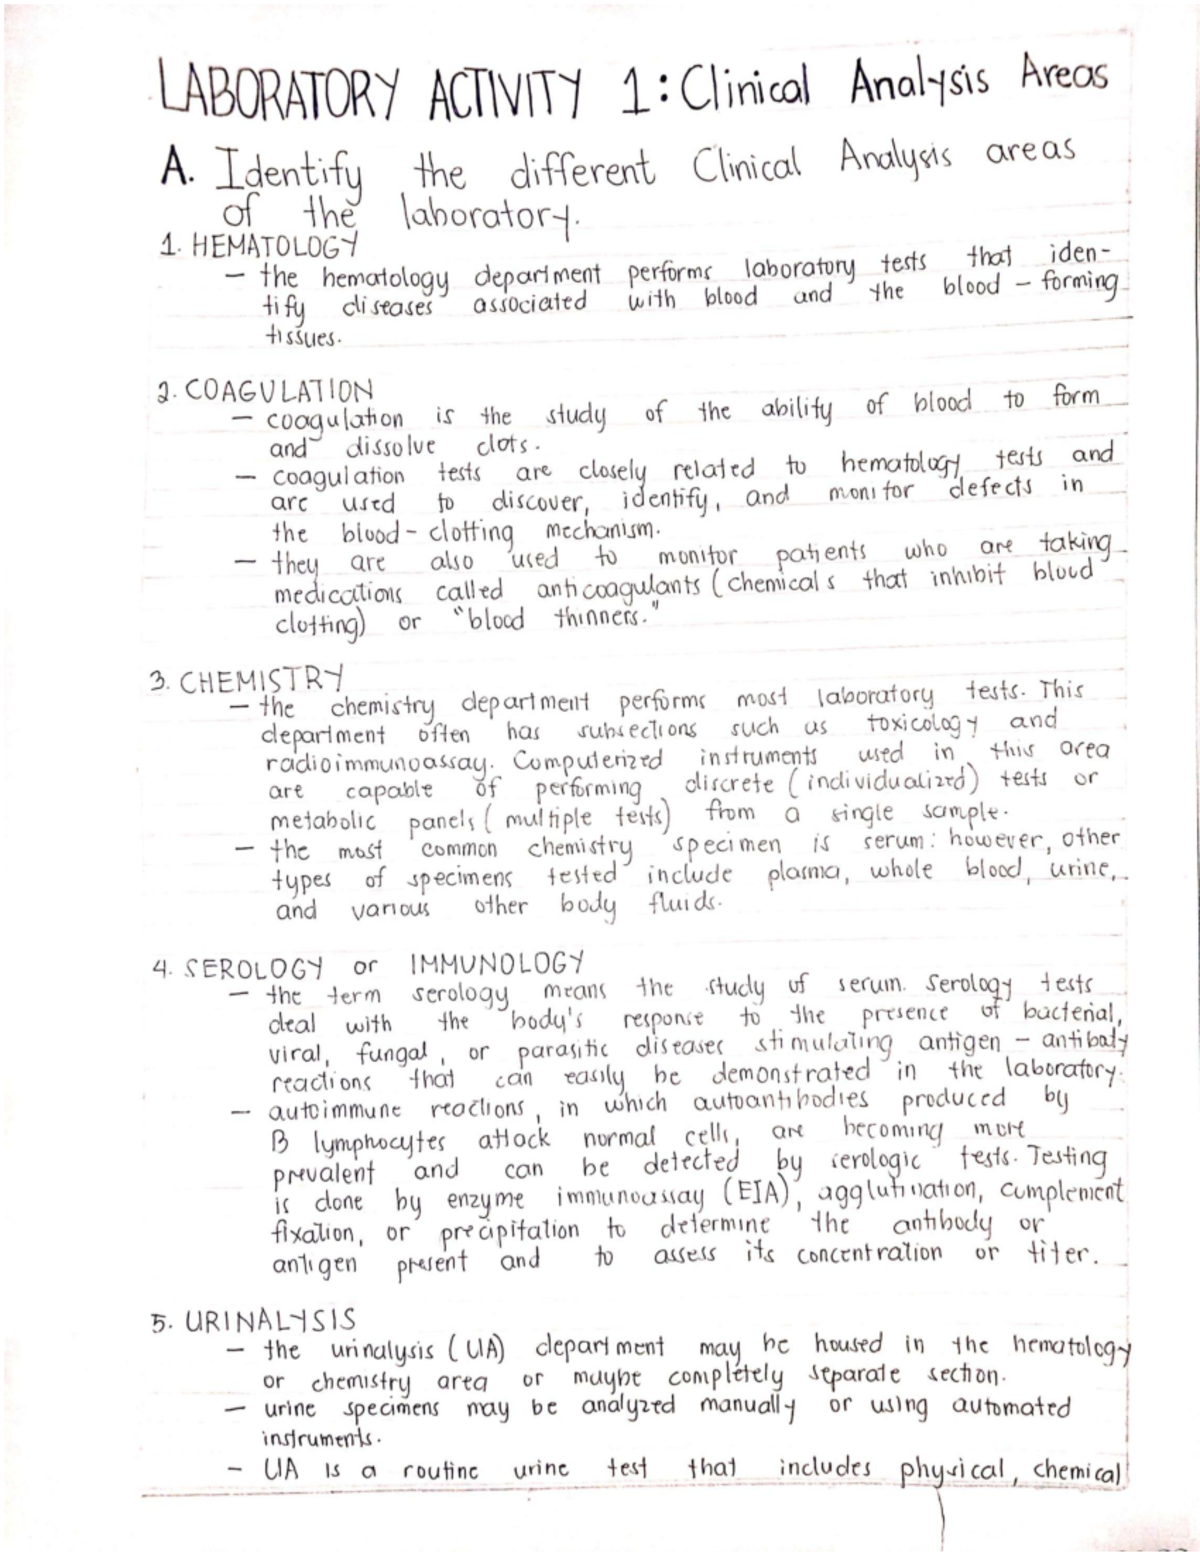 LABORATORY ACTIVITY 1: Clinical Analysis Areas
A. Identify the different Clinical Analysis areas
of the laboratory.
1. HEMATOLOGY
– the hematology department performs laboratory tests that iden-
tify diseases associated with blood and the blood – forming
tissues.
2. COAGULATION
– coagulation is the study of the ability of blood to form
and dissolve clots.
– coagulation tests are closely related to hematology tests and
are used to discover, identify, and monitor defects in
the blood – clotting mechanism.
– they are also used to monitor patients who are taking
medications called anticoagulants (chemicals that inhibit blood
clotting) or "blood thinners."
3. CHEMISTRY
– the chemistry department performs most laboratory tests. This
department often has subsections such as toxicology and
radioimmunoassay. Computerized instruments used in this area
are capable of performing discrete (individualized) tests or
metabolic panels (multiple tests) from a single sample.
– the most common chemistry specimen is serum: however, other
types of specimens tested include plasma, whole blood, urine,
and various other body fluids.
4. SEROLOGY or IMMUNOLOGY
– the term serology means the study of serum. Serology tests
deal with the body's response to the presence of bacterial,
viral, fungal, or parasitic diseases stimulating antigen – antibody
reactions that can easily be demonstrated in the laboratory.
– autoimmune reactions, in which autoantibodies produced by
B lymphocytes attack normal cells, are becoming more
prevalent and can be detected by serologic tests. Testing
is done by enzyme immunoassay (EIA), agglutination, complement
fixation, or precipitation to determine the antibody or
antigen present and to assess its concentration or titer.
5. URINALYSIS
– the urinalysis (UA) department may be housed in the hematology
or chemistry area or maybe completely separate section.
– urine specimens may be analyzed manually or using automated
instruments.
– UA is a routine urine test that includes physical, chemical